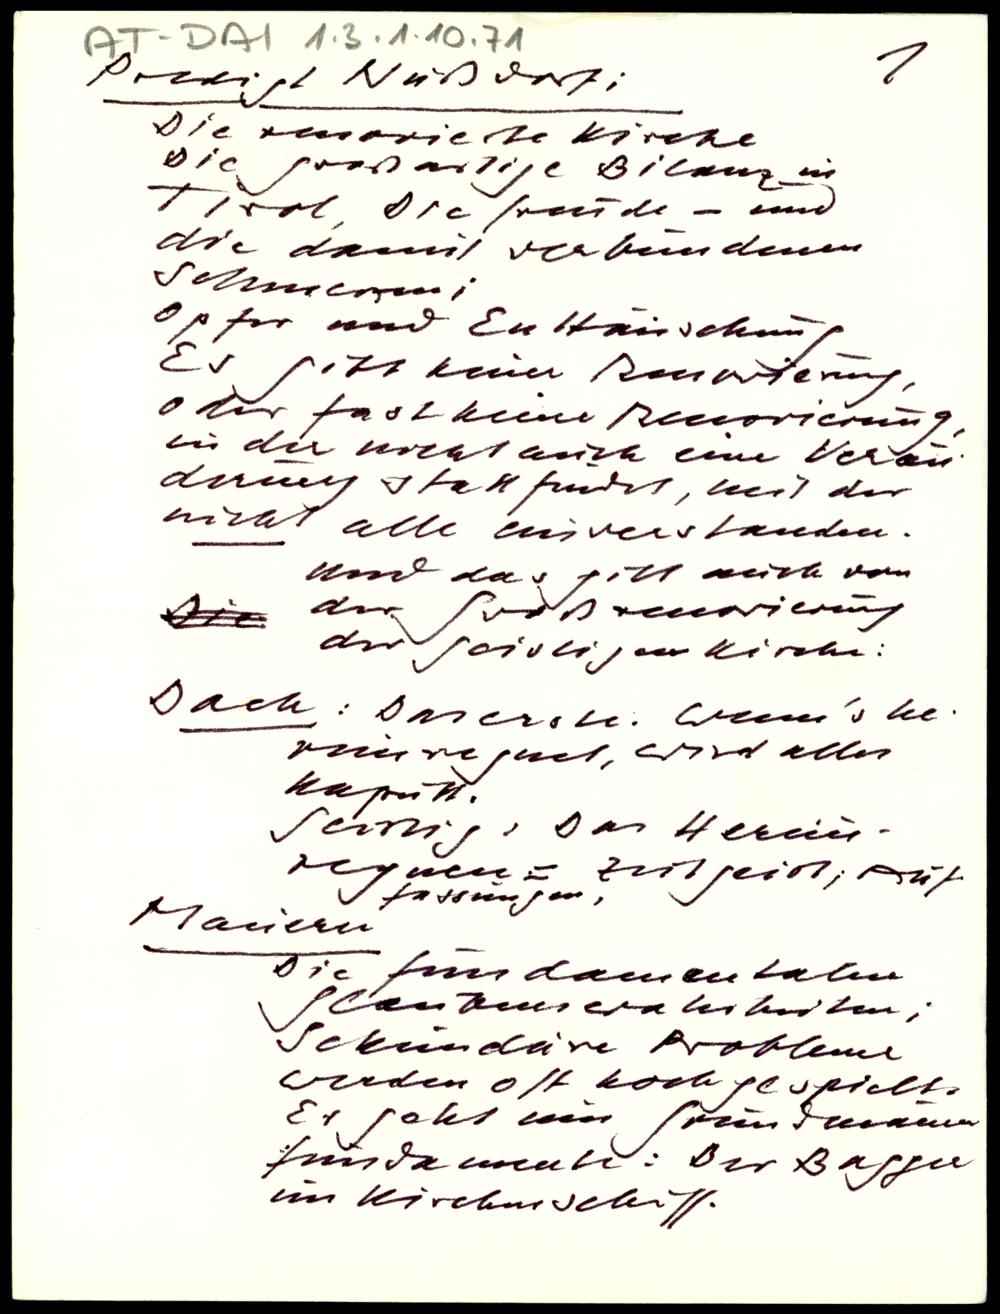 AT-DAI 1.3.1.10.71
1
Predigt Nußdorf:
Die renovierte Kirche
Die großartige Bilanz in
Tirol, Die Freude - und
die damit verbundenen
Schmerzen;
Opfer und Enttäuschung
Es gibt keine Renovierung,
oder fast keine Renovierung,
in der nicht auch eine Verän
derung stattfindet, mit der
nicht alle einverstanden.
Und das gilt auch von
Die der Großrenovierung
der geistigen Kirche:
Dach: Das erste. Wenn's he-
reinregnet, wird alles
kaputt.
Geistig: Das Herein-
regnen = Zeitgeist; Auf
fassungen,
Mauern
Die fundamentalen
Glaubenswahrheiten;
Sekundäre Probleme
werden oft hochgespielt.
Es geht um Grundmauern
fundamente: Der Bagger
im Kirchenschiff.